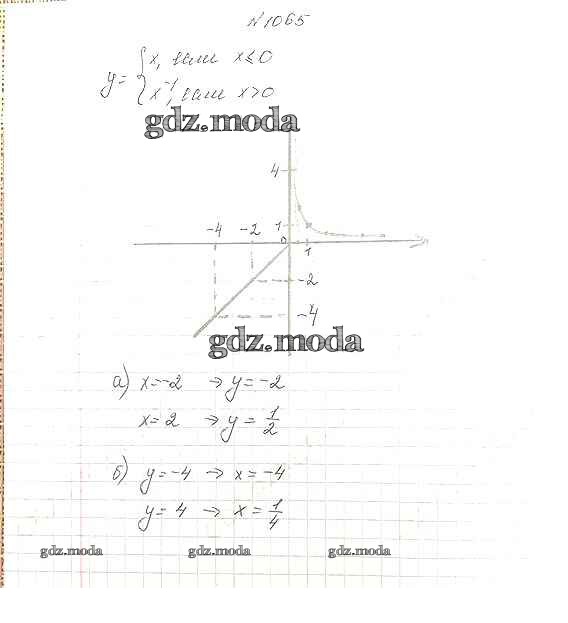 №1065
y = { x, если x ≤ 0
x⁻¹, если x > 0
gdz.moda
4
-4 -2 1
0 1
-2
-4
gdz.moda
а) x = -2 → y = -2
x = 2 → y = 1/2
б) y = -4 → x = -4
y = 4 → x = 1/4
gdz.moda gdz.moda gdz.moda